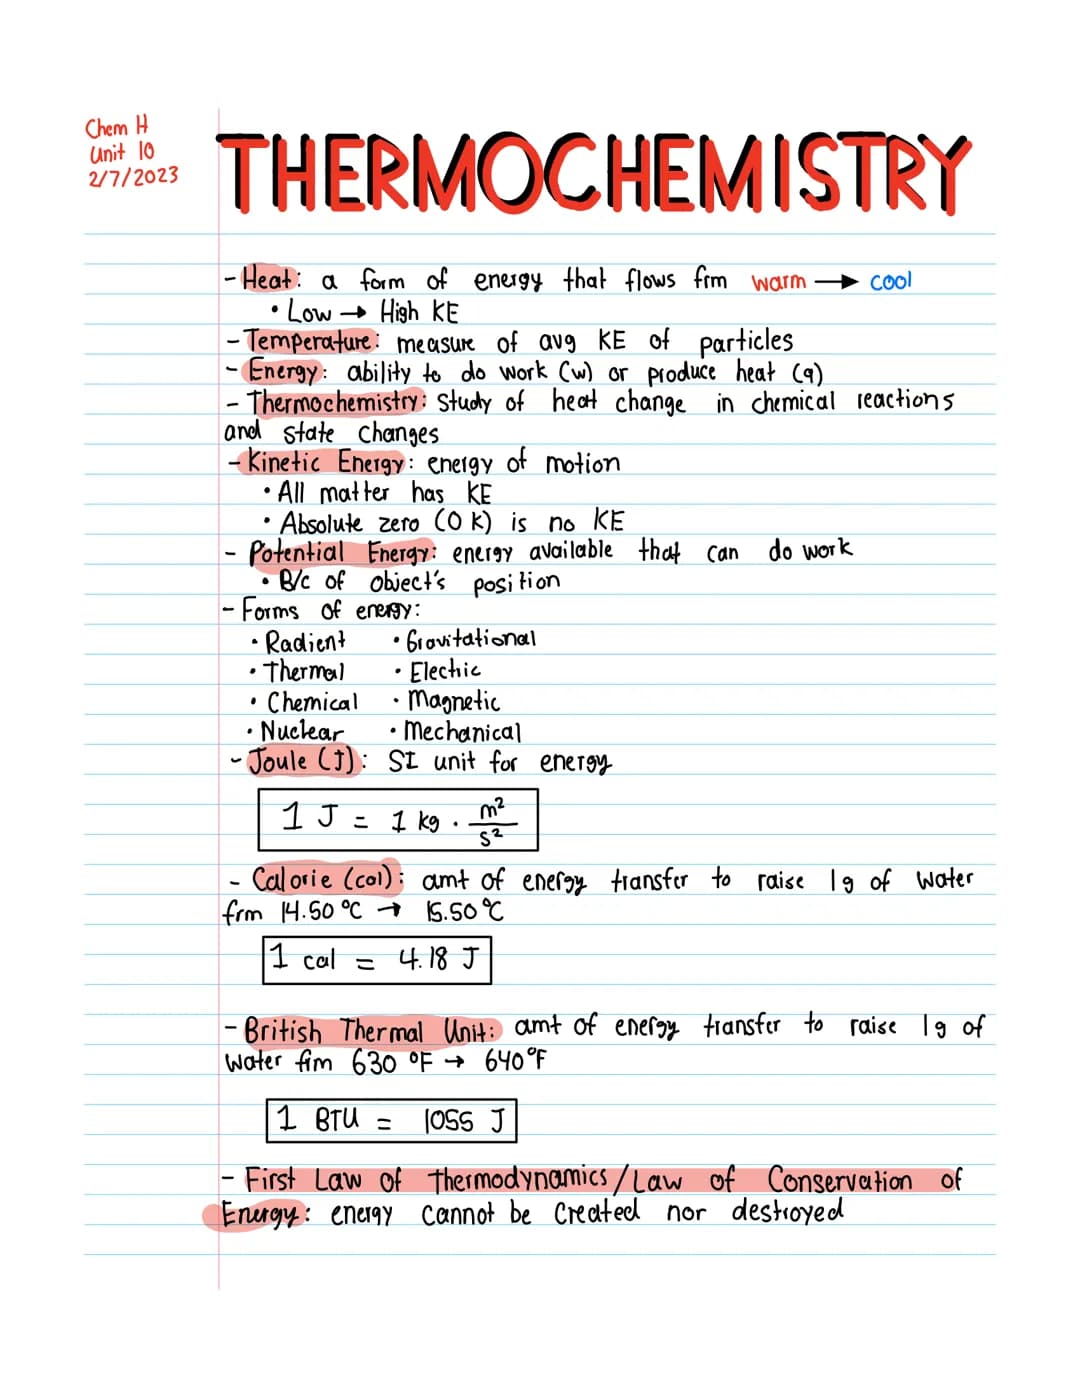 Chem H
Unit 10
2/7/2023
THERMOCHEMISTRY
- Heat: a form of energy that flows frm warm → cool
• Low → High KE
- Temperature: measure of avg KE of particles
- Energy: ability to do work (w) or produce heat (q)
- Thermochemistry: Study of heat change in chemical reactions
and state changes
- Kinetic Energy: energy of motion
• All matter has KE
• Absolute zero (0 K) is no KE
- Potential Energy: energy available that can do work
• B/c of object's position
- Forms of energy:
• Radient • Gravitational
• Thermal • Electric
• Chemical • Magnetic
• Nuclear • Mechanical
- Joule (J): SI unit for energy
1 J = 1 kg · m²/s²
- Calorie (cal): amt of energy transfer to raise 1g of water
frm 14.50 °C → 15.50 °C
1 cal = 4.18 J
- British Thermal Unit: amt of energy transfer to raise 1g of
water frm 630 °F → 640 °F
1 BTU = 1055 J
- First Law of Thermodynamics/Law of Conservation of
Energy: energy cannot be created nor destroyed